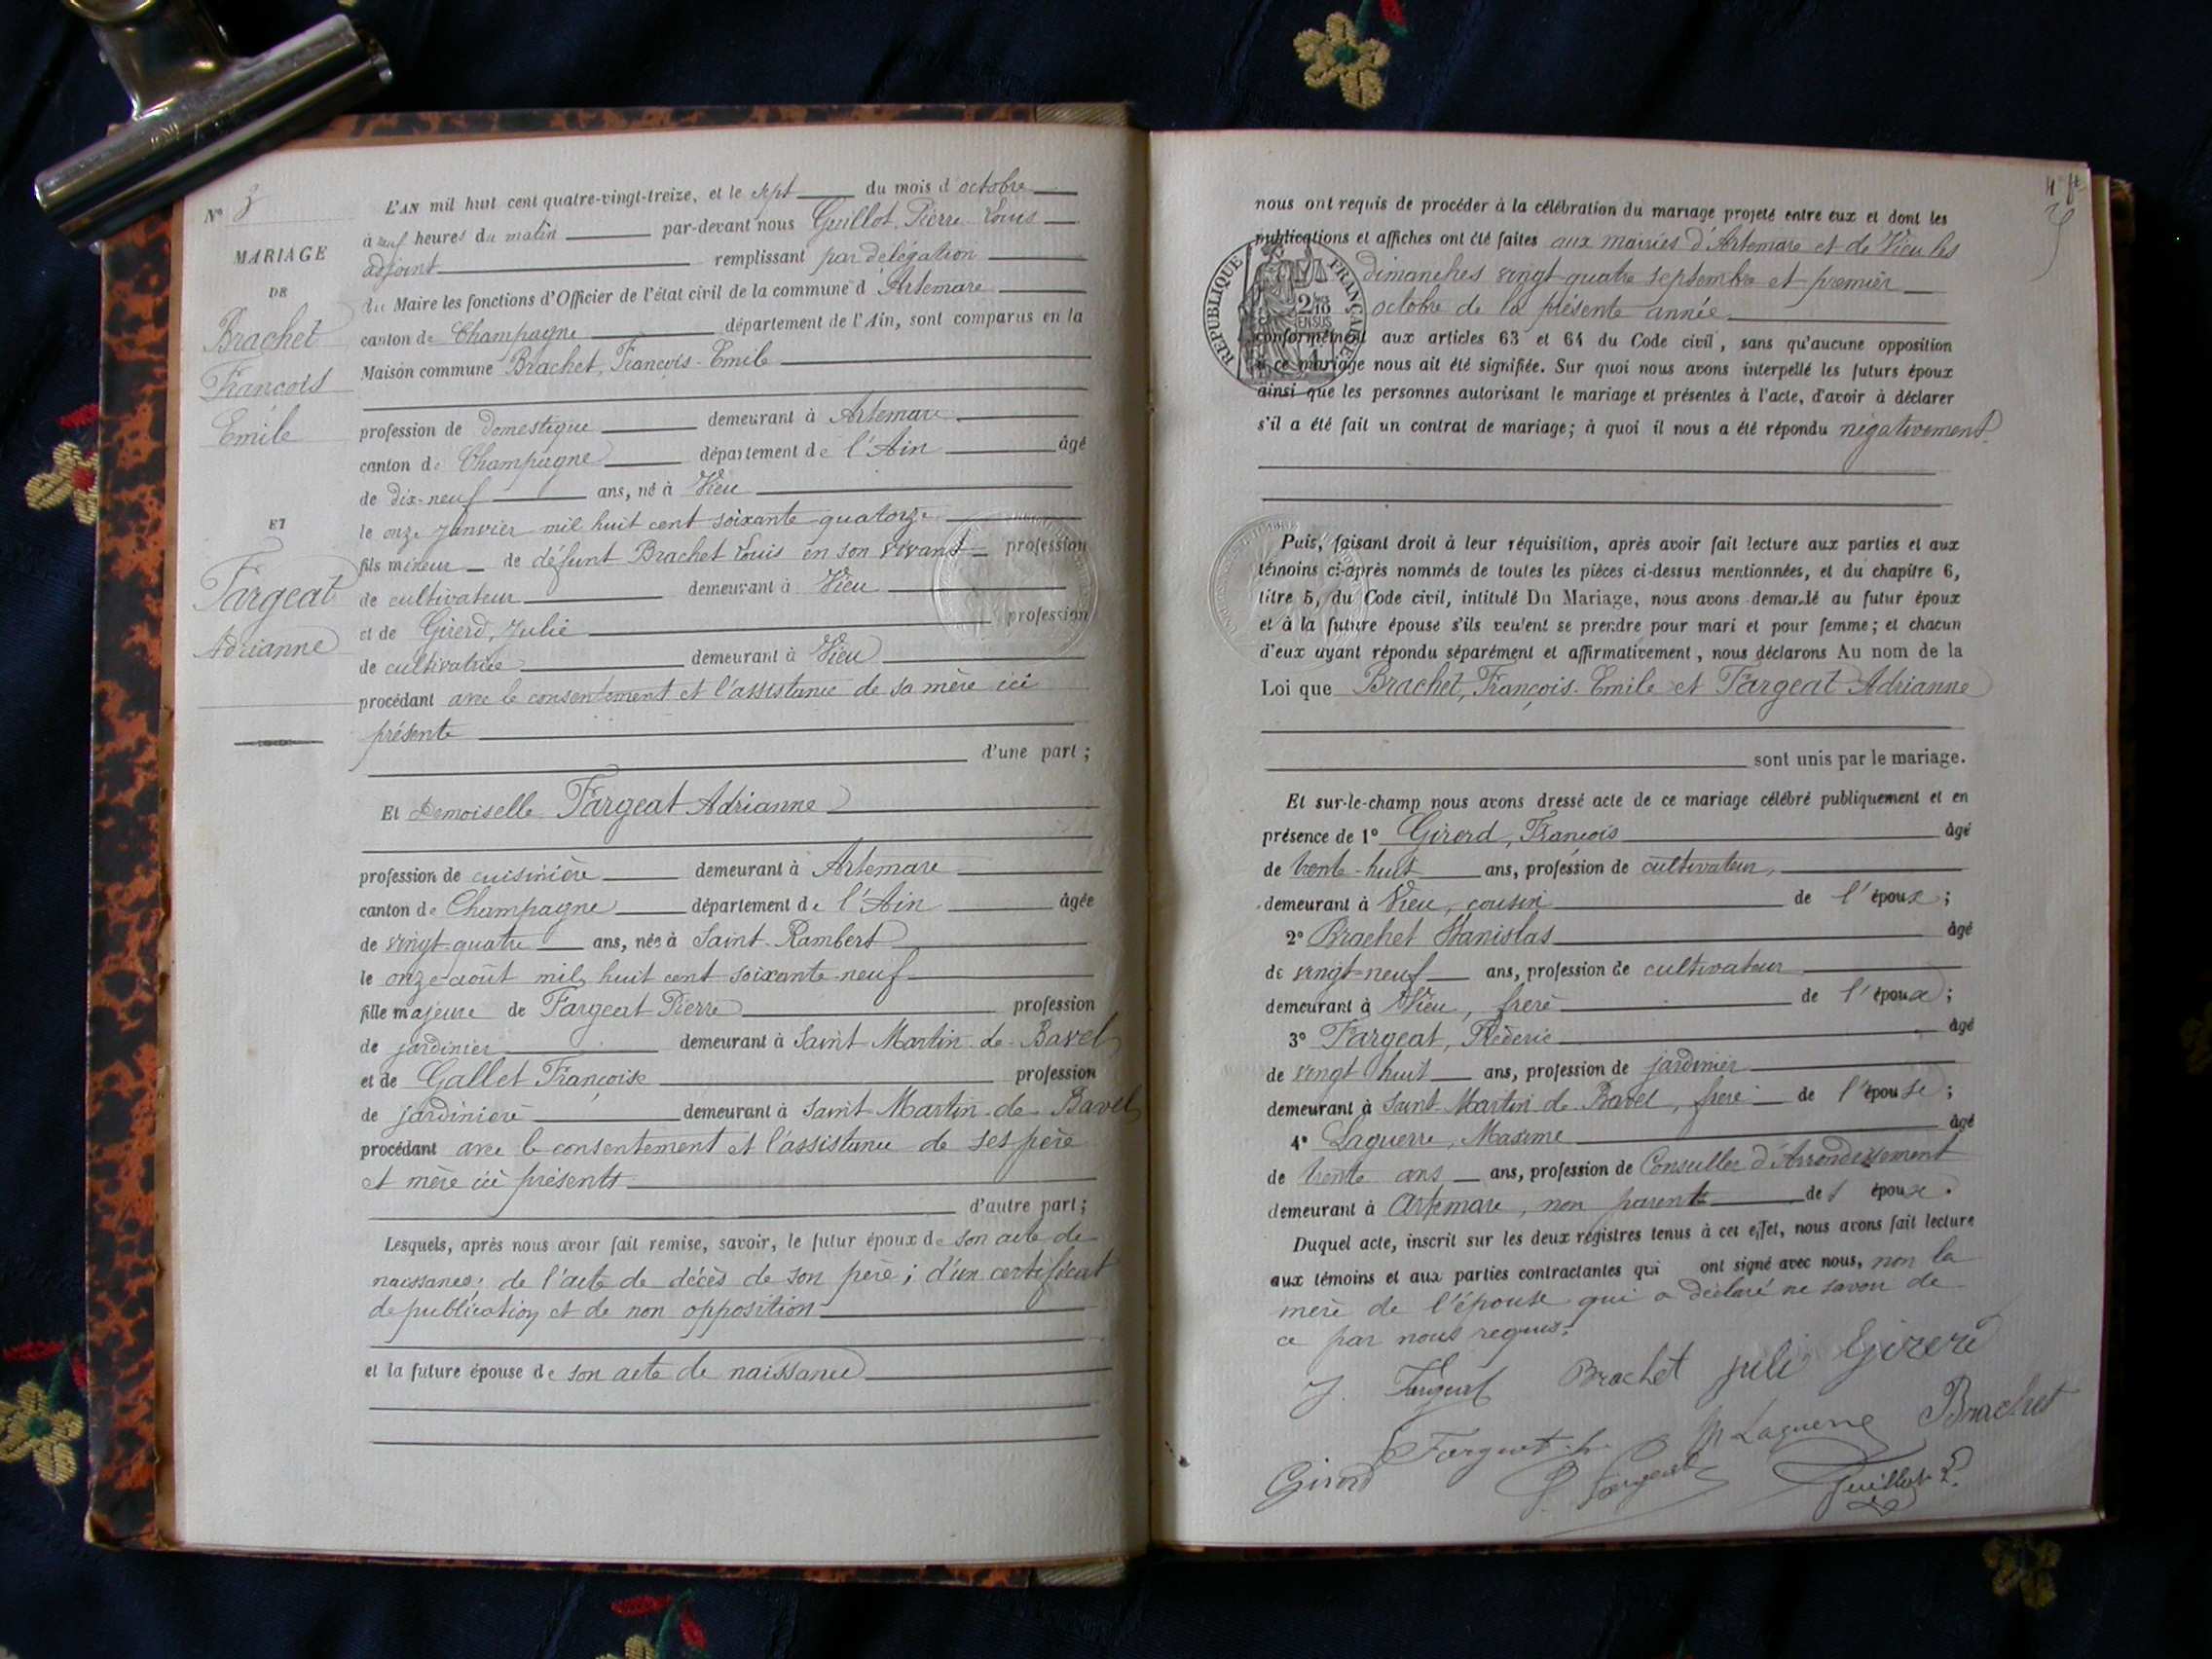 N° 3
MARIAGE
DE
Brachet
François
Emile
ET
Fargeat
Adrianne
L'AN mil huit cent quatre-vingt-treize, et le sept du mois d'octobre
à neuf heures du matin par-devant nous Guillot, Pierre Louis
adjoint remplissant par délégation
du Maire les fonctions d'Officier de l'état civil de la commune d'Artemare
canton de Champagne département de l'Ain, sont comparus en la
Maison commune Brachet, François-Emile
profession de domestique demeurant à Artemare
canton de Champagne département de l'Ain âgé
de dix-neuf ans, né à Vieu
le onze janvier mil huit cent soixante quatorze
fils mineur de défunt Brachet Louis en son vivant profession
de cultivateur demeurant à Vieu
et de Girerd, Julie profession
de cultivatrice demeurant à Vieu
procédant avec le consentement et l'assistance de sa mère ici
présente
d'une part ;
Et Demoiselle Fargeat Adrianne
profession de cuisinière demeurant à Artemare
canton de Champagne département de l'Ain âgée
de vingt-quatre ans, née à Saint-Rambert
le onze août mil huit cent soixante-neuf
fille majeure de Fargeat Pierre profession
de jardinier demeurant à Saint Martin-de-Bavel
et de Gallet Françoise profession
de jardinière demeurant à Saint Martin-de-Bavel
procédant avec le consentement et l'assistance de ses père
et mère ici présents
d'autre part ;
Lesquels, après nous avoir fait remise, savoir, le futur époux de son acte de
naissance ; de l'acte de décès de son père ; d'un certificat
de publication et de non opposition
et la future épouse de son acte de naissance
nous ont requis de procéder à la célébration du mariage projeté entre eux et dont les
publications et affiches ont été faites aux mairies d'Artemare et de Vieu les
dimanches vingt-quatre septembre et premier
octobre de la présente année
REPUBLIQUE FRANÇAISE
conformément aux articles 63 et 64 du Code civil, sans qu'aucune opposition
à ce mariage nous ait été signifiée. Sur quoi nous avons interpellé les futurs époux
ainsi que les personnes autorisant le mariage et présentes à l'acte, d'avoir à déclarer
s'il a été fait un contrat de mariage ; à quoi il nous a été répondu négativement.
Puis, faisant droit à leur réquisition, après avoir fait lecture aux parties et aux
témoins ci-après nommés de toutes les pièces ci-dessus mentionnées, et du chapitre 6,
titre 5, du Code civil, intitulé Du Mariage, nous avons demandé au futur époux
et à la future épouse s'ils veulent se prendre pour mari et pour femme ; et chacun
d'eux ayant répondu séparément et affirmativement, nous déclarons Au nom de la
Loi que Brachet, François-Emile et Fargeat Adrianne
sont unis par le mariage.
Et sur-le-champ nous avons dressé acte de ce mariage célébré publiquement et en
présence de 1° Girerd, François âgé
de trente-huit ans, profession de cultivateur,
demeurant à Vieu, cousin de l'époux ;
2° Brachet Stanislas âgé
de vingt-neuf ans, profession de cultivateur
demeurant à Vieu, frère de l'époux ;
3° Fargeat, Fréderic âgé
de vingt huit ans, profession de jardinier
demeurant à Saint-Martin-de-Bavel, frère de l'épouse ;
4° Laguerre, Maxime âgé
de trente ans ans, profession de Conseiller d'Arrondissement
demeurant à Artemare, non parent de l'époux.
Duquel acte, inscrit sur les deux registres tenus à cet effet, nous avons fait lecture
aux témoins et aux parties contractantes qui ont signé avec nous, non la
mère de l'épouse qui a déclaré ne savoir de
ce par nous requis.
Fargeat Brachet juli Girerd
Fargeat M Laguerre Brachet
Girerd Fargeat Guillot P.